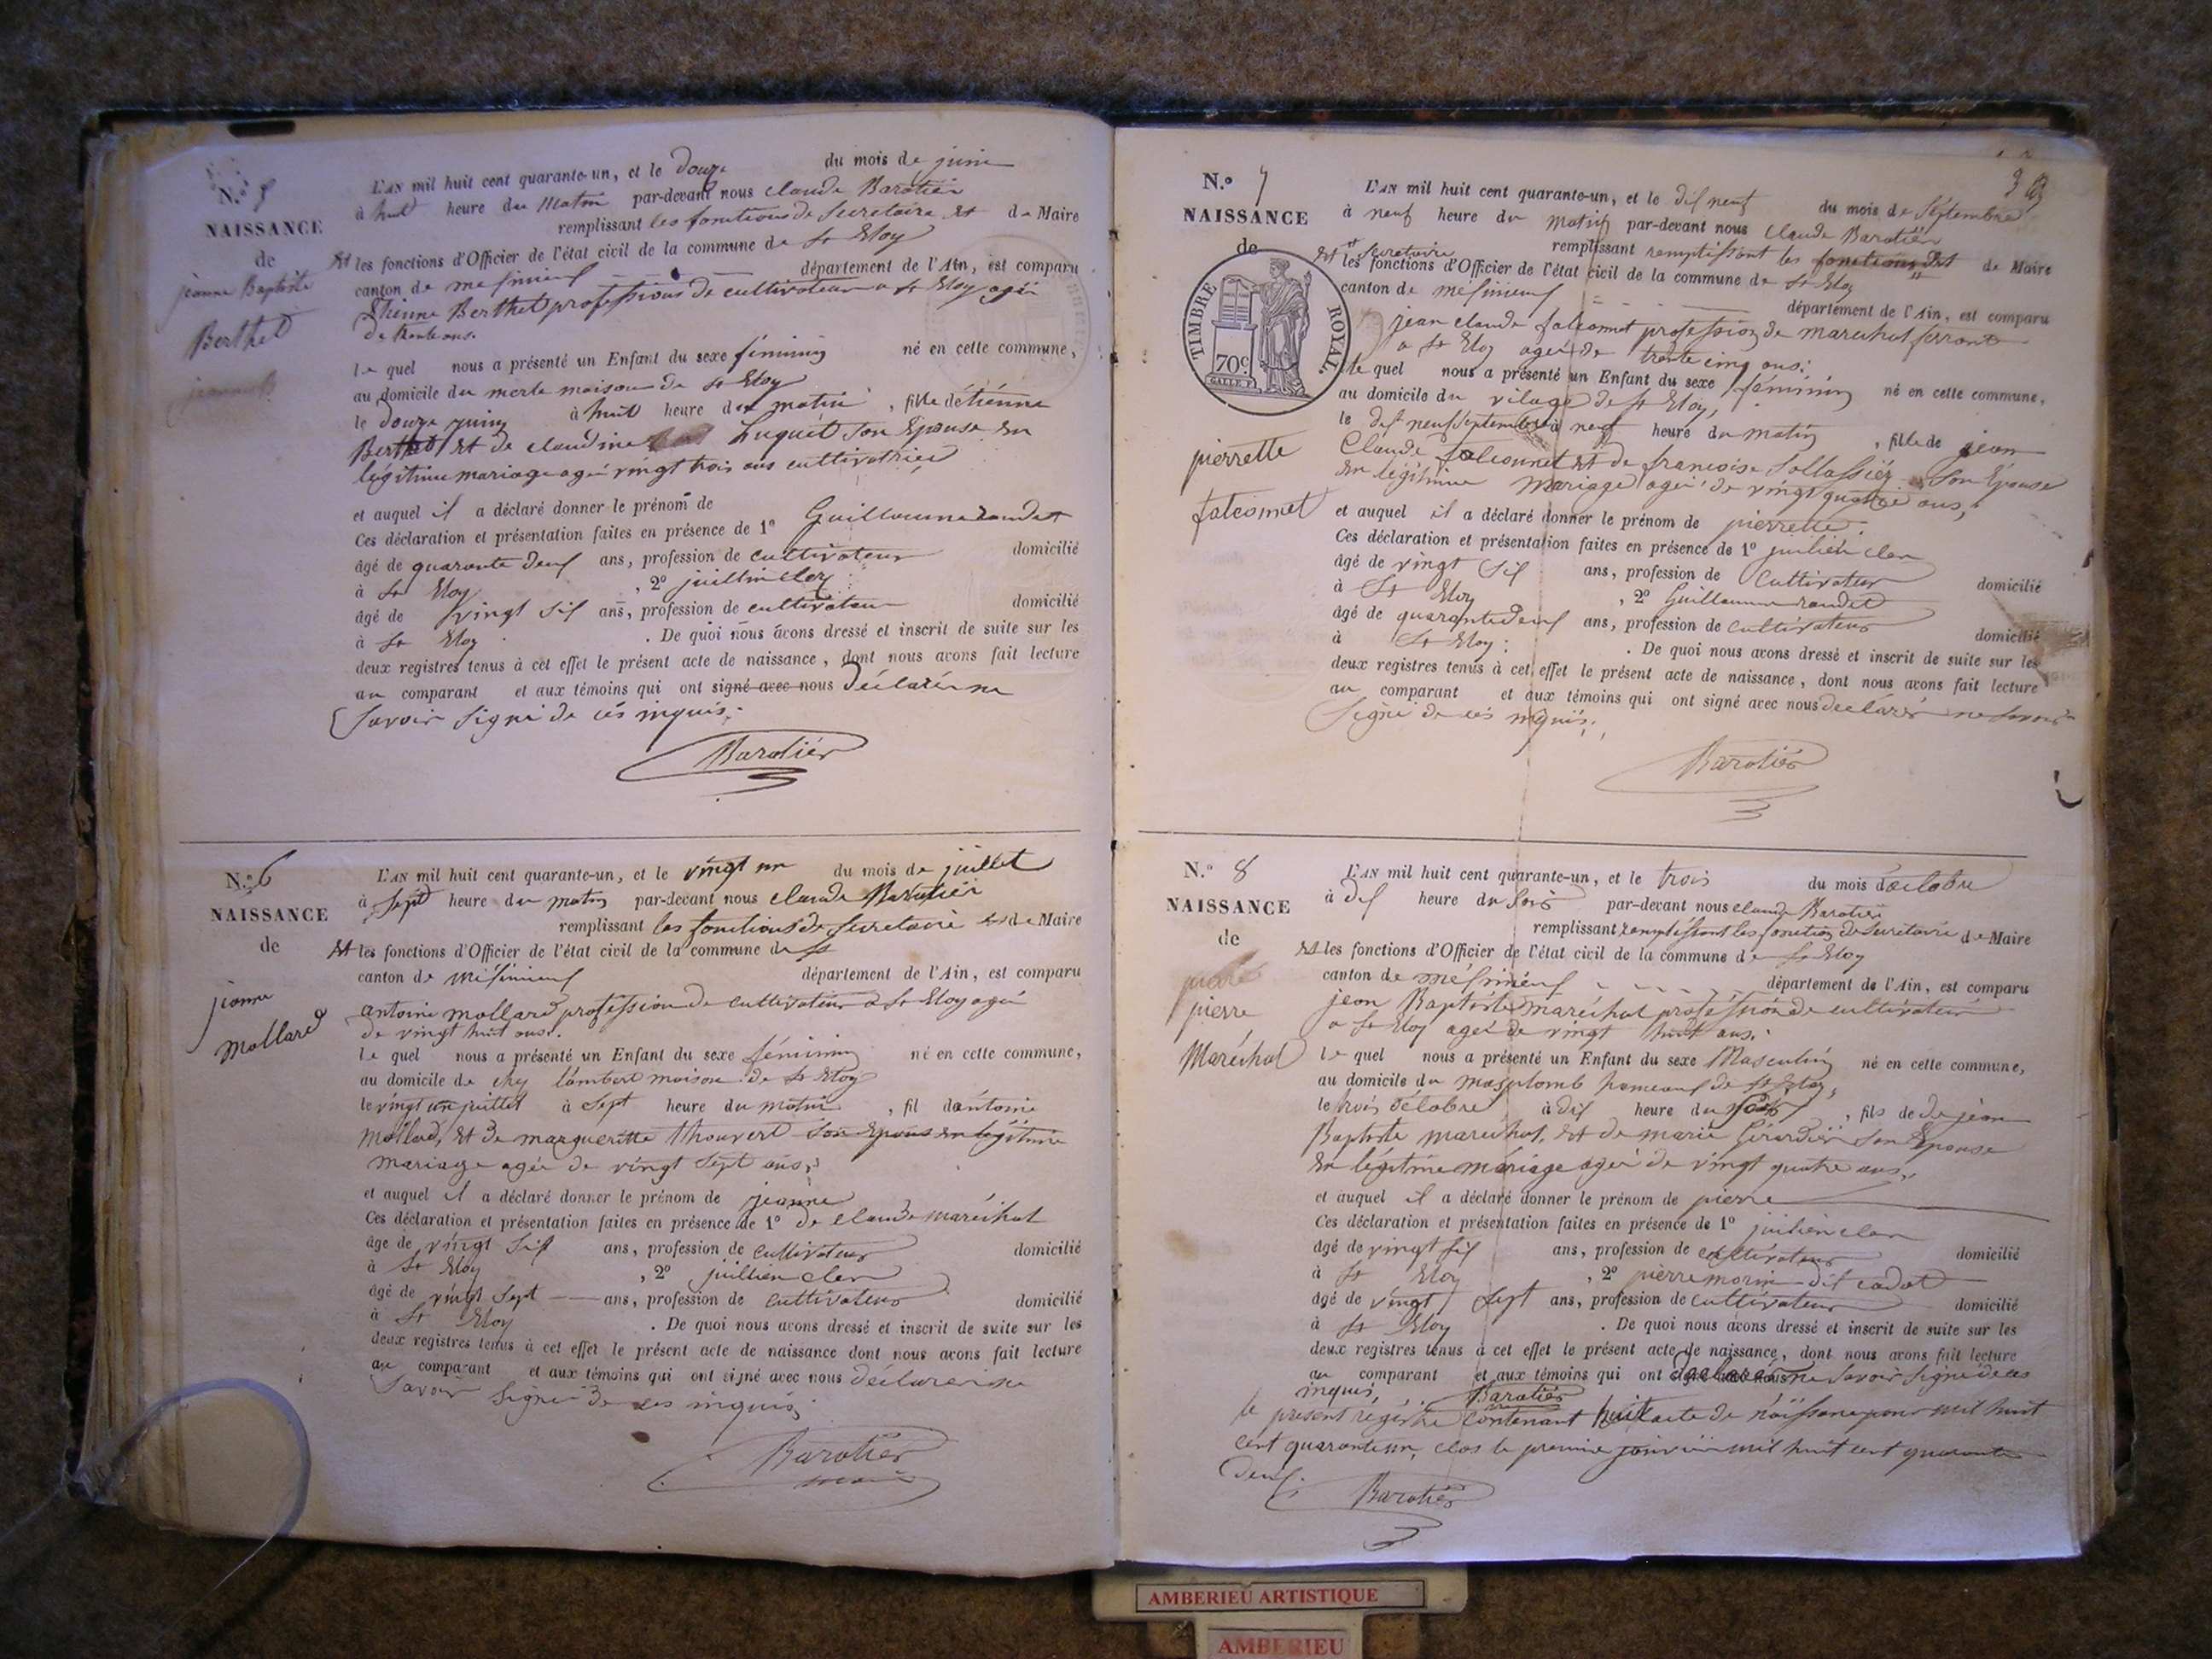 N.° 5
NAISSANCE
de
jeanne Baptiste
Berthet
L'AN mil huit cent quarante-un, et le douze du mois de juin
à huit heure du Matin par-devant nous claude Barotier
remplissant les fonctions de Secretaire Et de Maire
Et les fonctions d'Officier de l'état civil de la commune de St Eloy
canton de département de l'Ain, est comparu
Etienne Berthet professions de cultivateur a St Eloy agé
de trente ans.
le quel nous a présenté un Enfant du sexe féminin né en cette commune,
au domicile du merle maison de St Eloy
le Douze juin à huit heure du matin, fille détienne
Berthet Et de claudine huguet Son Epouse En
légitime mariage ageé vingt trois ans cultivatrice
et auquel il a déclaré donner le prénom de
Ces déclaration et présentation faites en présence de 1° Guillaume
âgé de quarante deux ans, profession de cultivateur domicilié
à St Eloy, 2°
âgé de vingt six ans, profession de cultivateur domicilié
à St Eloy. De quoi nous avons dressé et inscrit de suite sur les
deux registres tenus à cet effet le présent acte de naissance, dont nous avons fait lecture
au comparant et aux témoins qui ont signé avec nous Déclaré ne
Savoir Signé de ces inquis.
Barotier
N.° 6
NAISSANCE
de
jeanne
Mollard
L'AN mil huit cent quarante-un, et le vingt un du mois de juillet
à Sept heure du matin par-devant nous claude Barotier
remplissant les fonctions de Secretaire Et de Maire
Et les fonctions d'Officier de l'état civil de la commune de St
canton de département de l'Ain, est comparu
antoine mollard profession de cultivateur a St Eloy agé
de vingt huit ans.
le quel nous a présenté un Enfant du sexe féminin né en cette commune,
au domicile de chez lambert maison de St Eloy
le vingt un juillet à Sept heure du matin, fil dantoine
Mollard, Et de margueritte thouvert Son Epouse En légitime
mariage ageé de vingt Sept ans,
et auquel il a déclaré donner le prénom de jeanne
Ces déclaration et présentation faites en présence de 1° de claude maréchal
âgé de vingt Six ans, profession de cultivateur domicilié
à St Eloy, 2° juillien cler
âgé de vingt Sept ans, profession de cultivateur domicilié
à St Eloy. De quoi nous avons dressé et inscrit de suite sur les
deux registres tenus à cet effet le présent acte de naissance dont nous avons fait lecture
au comparant et aux témoins qui ont signé avec nous déclaré ne
Savoir Signé de ces inquis
Barotier
maire
N.° 7
NAISSANCE
de
TIMBRE ROYAL.
70c
GALLE F.
pierrette
falconnet
L'AN mil huit cent quarante-un, et le dix neuf du mois de Septembre
à neuf heure du Matin par-devant nous Claude Barotier
remplissant remplissant les fonctions Et de Maire
Et Secretaire
Et les fonctions d'Officier de l'état civil de la commune de St Eloy
canton de département de l'Ain, est comparu
jean claude falconnet profession de marechal ferrant
a St Eloy ageé de trente cinq ans.
le quel nous a présenté un Enfant du sexe féminin né en cette commune,
au domicile du vilage de St Eloy,
le dix neuf Septembre à neuf heure du matin, fille de jean
Claude falconnet Et de francoise Son Epouse
En légitime Mariage ageé de vingt quatre ans,
et auquel il a déclaré donner le prénom de pierrette.
Ces déclaration et présentation faites en présence de 1° juilien cler
âgé de vingt Six ans, profession de Cultivateur domicilié
à St Eloy, 2° Guillaume
âgé de quarante deux ans, profession de cultivateur domicilié
à St Eloy. De quoi nous avons dressé et inscrit de suite sur les
deux registres tenus à cet effet le présent acte de naissance, dont nous avons fait lecture
au comparant et aux témoins qui ont signé avec nous declaré ne Savoir
Signé de ces inquis.
Barotier
N.° 8
NAISSANCE
de
pierre
Maréchal
L'AN mil huit cent quarante-un, et le trois du mois d'octobre
à dix heure du Soir par-devant nous claude Barotier
remplissant remplissant les fonction de Secretaire de Maire
Et les fonctions d'Officier de l'état civil de la commune de St Eloy
canton de département de l'Ain, est comparu
jean Baptiste maréchal proféssion de cultivateur
a St Eloy ageé de vingt huit ans.
le quel nous a présenté un Enfant du sexe Masculin né en cette commune,
au domicile du hameaux de St Eloy,
le trois octobre à dix heure du Soir, fils de De jean
Baptiste marechal, Et de marie Girardier Son Epouse
En légitime mariage ageé de vingt quatre ans,
et auquel il a déclaré donner le prénom de pierre
Ces déclaration et présentation faites en présence de 1° juilien cler
âgé de vingt Six ans, profession de cultivateur domicilié
à St Eloy, 2° pierre morin dit cadot
âgé de vingt Sept ans, profession de cultivateur domicilié
à St Eloy. De quoi nous avons dressé et inscrit de suite sur les
deux registres tenus à cet effet le présent acte de naissance, dont nous avons fait lecture
au comparant et aux témoins qui ont declaré ne Savoir Signé de ces
inquis, Barotier
le present régistre contenant huit acte de naissance pour mil huit
cent quarante un, clos le premier janvier mil huit cent quarante
deux.
Barotier
AMBERIEU ARTISTIQUE
AMBERIEU